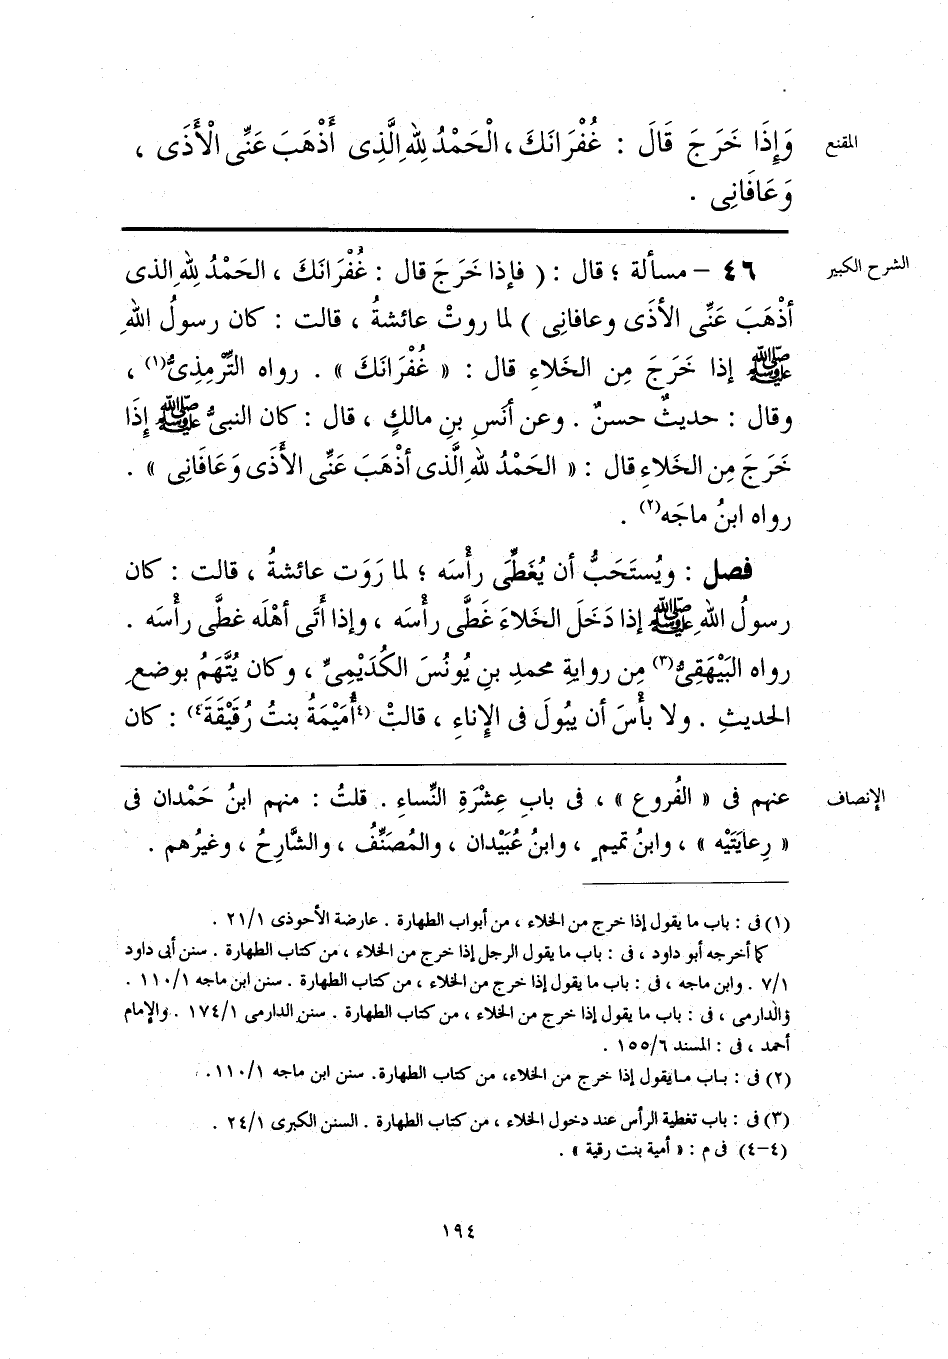 المقنع
وَإِذَا خَرَجَ قَالَ : غُفْرَانَكَ ، الْحَمْدُ لِلهِ الَّذِى أَذْهَبَ عَنِّى الْأَذَى ،
وَعَافَانِى .
الشرح الكبير
٤٦ – مسألة ؛ قال : ( فإذا خَرَجَ قال : غُفْرَانَكَ ، الحَمْدُ لِلهِ الذى
أذْهَبَ عَنِّى الأذَى وعافانِى ) لما روتْ عائشةُ ، قالت : كان رسولُ اللهِ
ﷺ إذا خَرَجَ مِن الخَلاءِ قال : « غُفْرَانَكَ » . رواه التِّرْمِذِىُّ(١) ،
وقال : حديثٌ حسنٌ . وعن أنَسِ بنِ مالكٍ ، قال : كان النبىُّ ﷺ إذَا
خَرَجَ مِن الخلاءِ قال : « الحَمْدُ لله الَّذى أذْهَبَ عَنِّى الأَذَى وَعَافَانِى » .
رواه ابنُ ماجَه(٢) .
فصل : ويُستَحَبُّ أن يُغَطِّىَ رأْسَه ؛ لما رَوَت عائشةُ ، قالت : كان
رسولُ اللهِ ﷺ إذا دَخَلَ الخَلاءَ غَطَّى رأْسَه ، وإذا أَتَى أهْلَه غطَّى رأْسَه .
رواه البَيْهَقِىُّ(٣) مِن روايةِ محمدِ بنِ يُونُسَ الكُدَيْمِىِّ ، وكان يُتَّهَمُ بوضعِ
الحديثِ . ولا بأْسَ أن يبُولَ فى الإِناءِ ، قالتْ (٤أُمَيْمَةُ بنتُ رُقَيْقَةَ٤) : كان
الإنصاف
عنهم فى « الفُروعِ » ، فى بابِ عِشْرَةِ النِّساءِ . قلتُ : منهم ابنُ حَمْدان فى
« رِعايَتَيْه » ، وابنُ تميمٍ ، وابنُ عُبَيْدان ، والمُصَنِّفُ ، والشَّارِحُ ، وغيرُهم .
(١) فى : باب ما يقول إذا خرج من الخلاء ، من أبواب الطهارة . عارضة الأحوذى ٢١/١ .
كما أخرجه أبو داود ، فى : باب ما يقول الرجل إذا خرج من الخلاء ، من كتاب الطهارة . سنن أبى داود
٧/١ . وابن ماجه ، فى : باب ما يقول إذا خرج من الخلاء ، من كتاب الطهارة . سنن ابن ماجه ١١٠/١ .
والدارمى ، فى : باب ما يقول إذا خرج من الخلاء ، من كتاب الطهارة . سنن الدارمى ١٧٤/١ . والإمام
أحمد ، فى : المسند ١٥٥/٦ .
(٢) فى : باب ما يقول إذا خرج من الخلاء، من كتاب الطهارة. سنن ابن ماجه ١١٠/١.
(٣) فى : باب تغطية الرأس عند دخول الخلاء ، من كتاب الطهارة . السنن الكبرى ٢٤/١ .
(٤-٤) فى م : « أمية بنت رقية » .
١٩٤